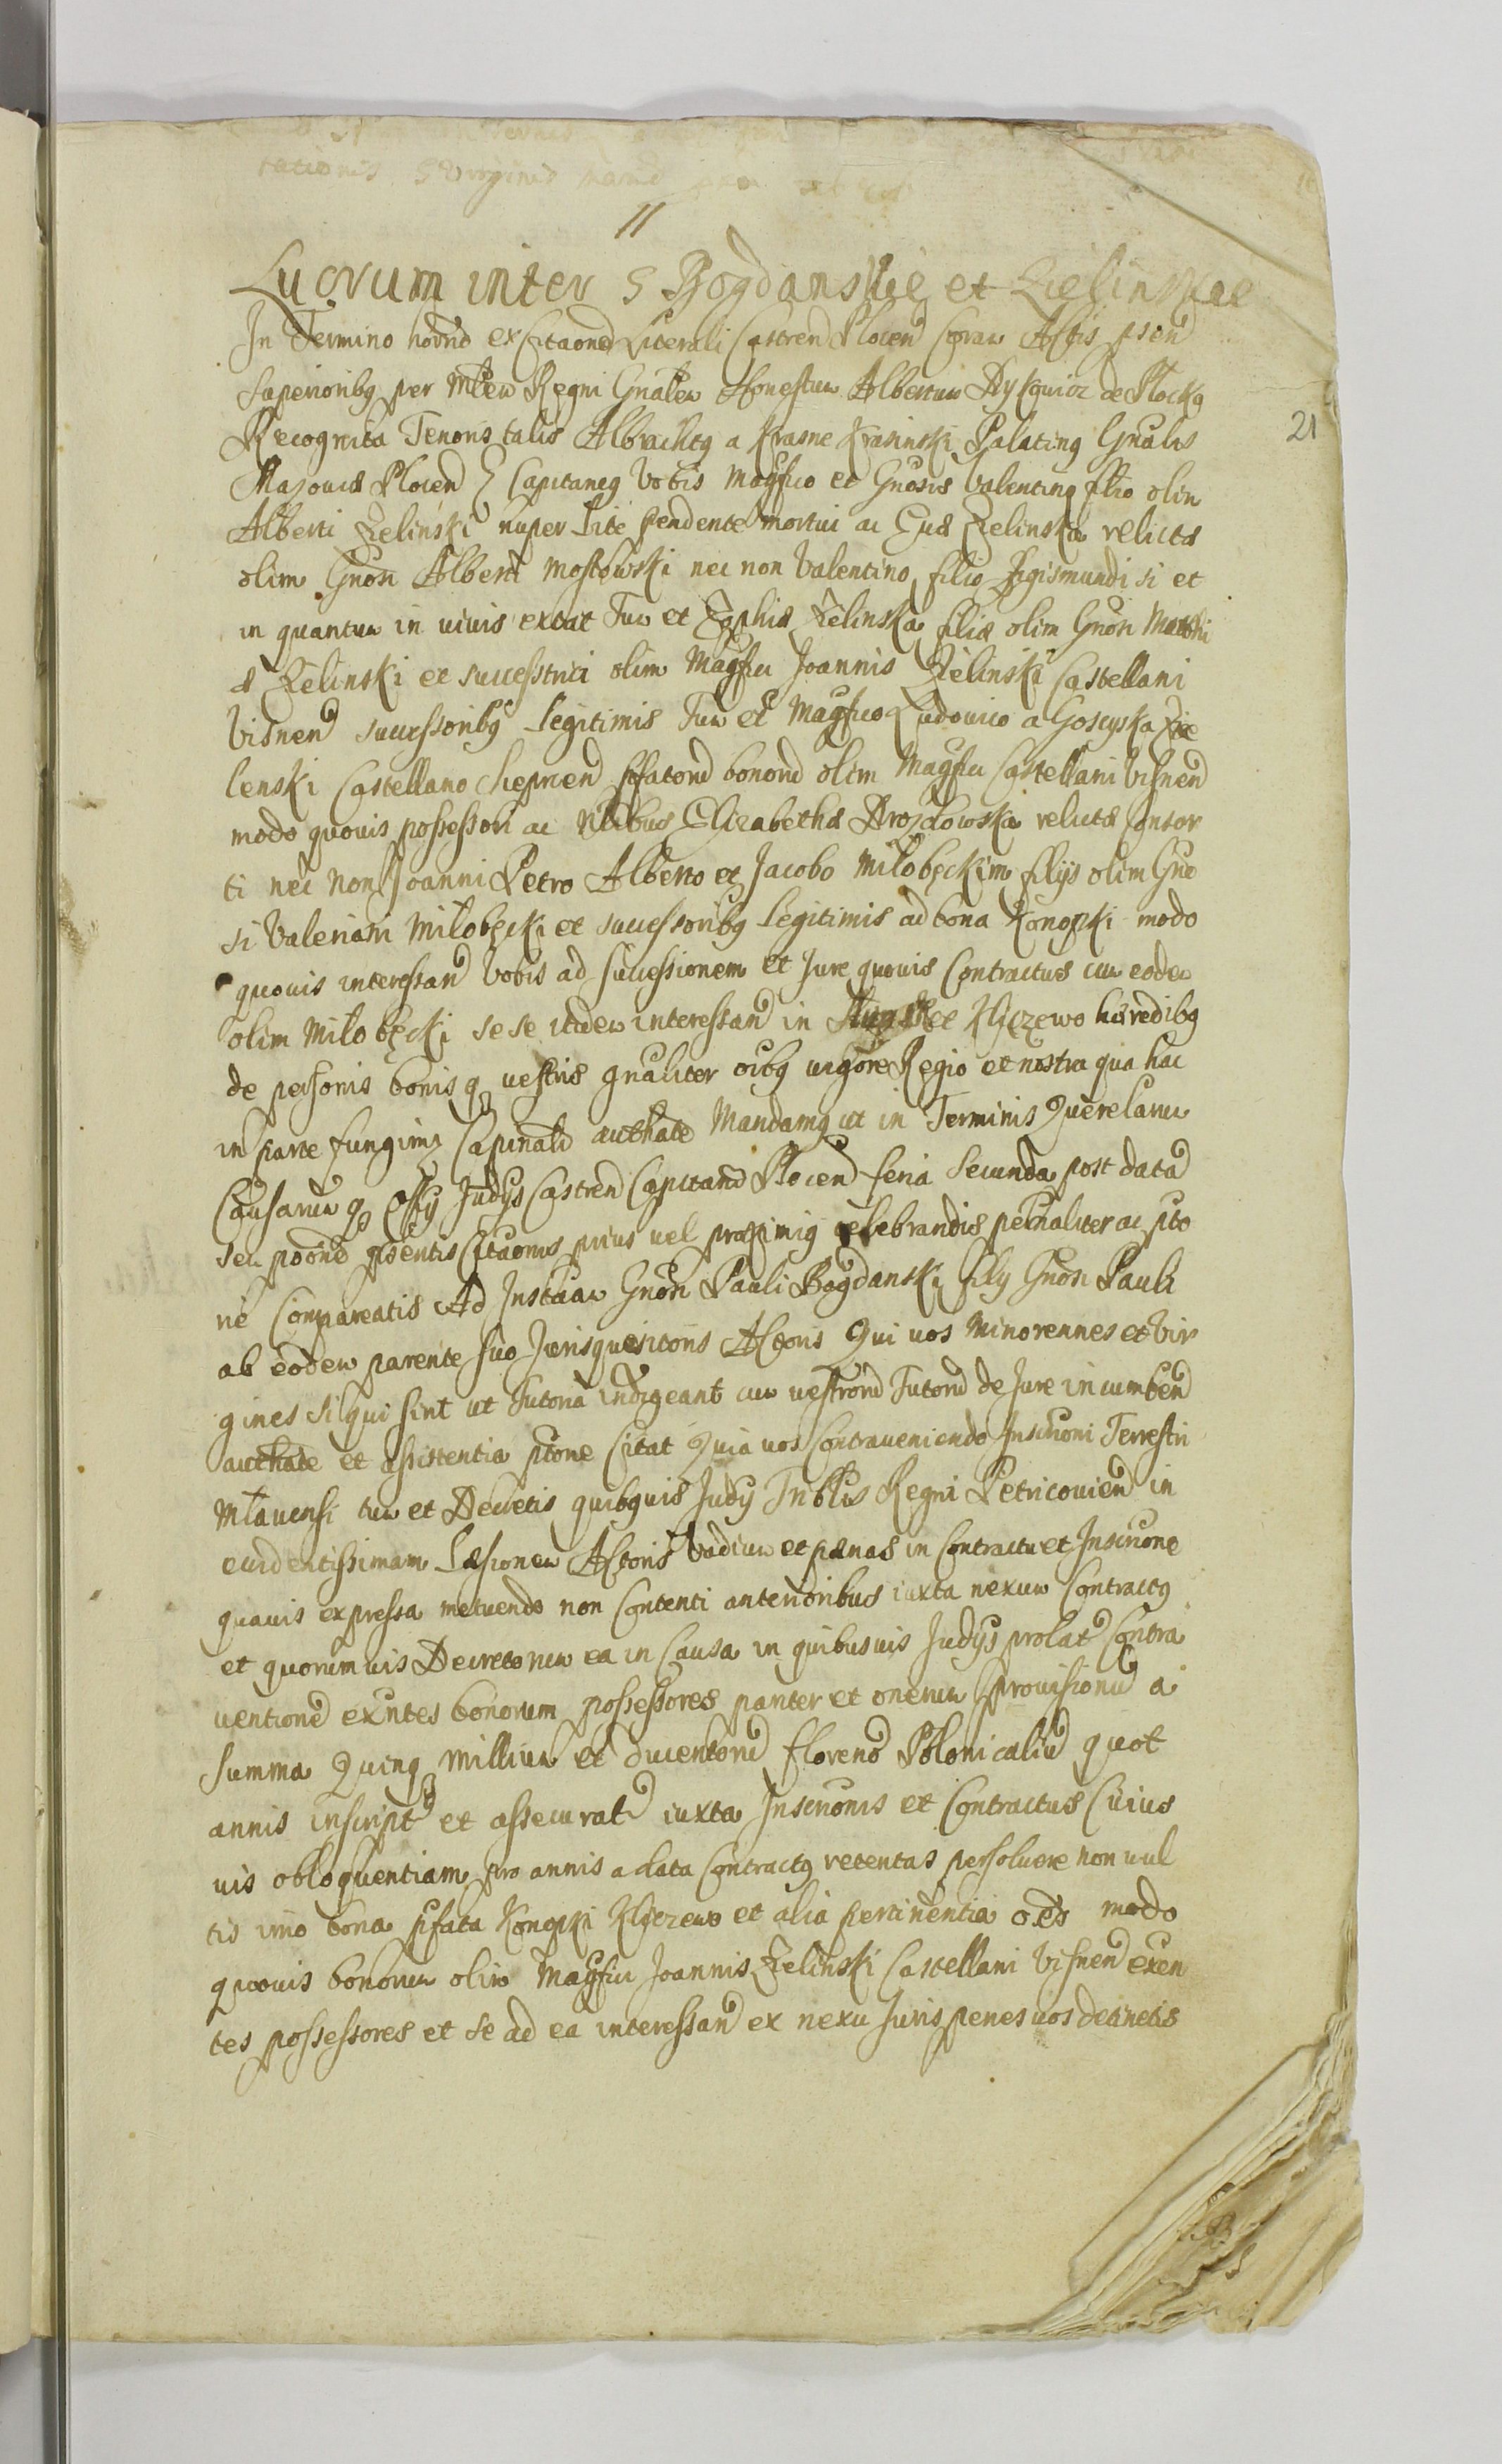 11
Lucrum inter S Bogdanskie et Zielinskie
In Termino ex Citaone Literali Castren Plocen Coram Actis psen
superioribg per Mlem Regni Gnalem Honestum Albertum de Plocko
Recognita Tenoris talis Albrachtg a Krasne Krasinski Palating Gnalis
Masouiæ Plocen Capitaneg Vobis Magfco et Gnosis Valenting flio olim
Alberti Zelinski nuper Lite pendente mortui ac Euæ Zelinska relictæ
olim Gnosi Alberti Mostowski nec non Valentino filio Zigismundi si et
in quantum in uiuis extat Tum et Zophiæ Zelinska filiæ olim Gnosi Matthi
æ Zelinski et successtrici olim Magfici Joannis Zielinski Castellani
Visnen sucessoribg Legitimis Tum et Magfico Ludouico a Goscyska Zie
lenski Castellano Siepricen pfatond bonond olim Magfici Castellani Visnen
modo quouis possessori ac Nlibus Elizabethæ Drozdowska relictæ Consor
ti nec Non Joanni Petro Alberto et Jacobo Milobęckim filijs olim Gno
si Valeriani Milobęcki et successoribg Legitimis ad bona Konopki modo
quouis interessan Vobis ad sucessionem et Jure quouis Contractus cum eodem
olim Milobęcki sese itidem interessan in et Kliczewo hæredibg
de personis bonisq uestris gnaliter oibg uigore Regio et nostra qua hac
in parte fungimg Capinali authate Mandamg ut in Terminis Querelarum
Causarum q Offy Judys Castren Capitan Plocen feria Secunda post data
seu poone psentis Citaonis prius uel proximig celebrandis psonaliter ac pto
rie Compareatis Ad Instaam Gnosi Pauli Bogdanski fily Gnosi Pauli
ab eodem parente suo Jurisquesitoris Actoris Qui uos Minorennes et Vir
gines si qui sint ut Tutoria indigeant cum uestrord Tutord de Jure incumben
authate et assistentia ptorie Citat Quia uos Contraueniendo Inscrioni Terrestri
Mlauensi tum et Decretis quibguis Judy Tribls Regni Petricouien in
euidentissimam Læsionem Actoris Vadium et pænas in Contractu et Inscrione
quauis expressa metuendo non Contenti anterioribus iuxta nexum Contractg
et quorumuis Decretorum ea in Causa in quibusuis Judys prolat Contra
uentione exntes bonorum possessores pariter et onerum prouisionu a
summa Quinq Millium et ducentord floreno Polonicaliu quot
annis inscript et assecurat iuxta Inscrionis et Contractus Cuius
uis obloquentiam pro annis a data Contractg retentas persoluere non uul
tis imo bona pfata Konopki Kliczewo et alia pertinentia oes modo
quouis bonorum olim Magfici Joannis Zelinski Castellani Visnen exen
tes possessores et se ad ea interessan ex nexu Juris penes uos detinetis
21